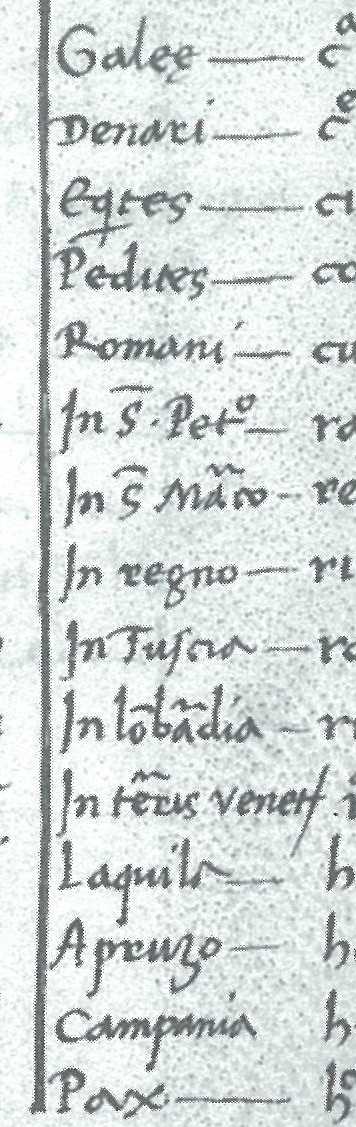 Galeę — c^a
Denari — c^e
Eq̃tes — ci
Pedites — co
Romani — cu
In S̃. Pet^o — ra
In S̃ Mar̃co — re
In regno — ri
In Tuſcia — ro
In lõbãdia — ri
In ter̃is venet
Laquila — h
Apruzo — h
Campania h
Pax — h